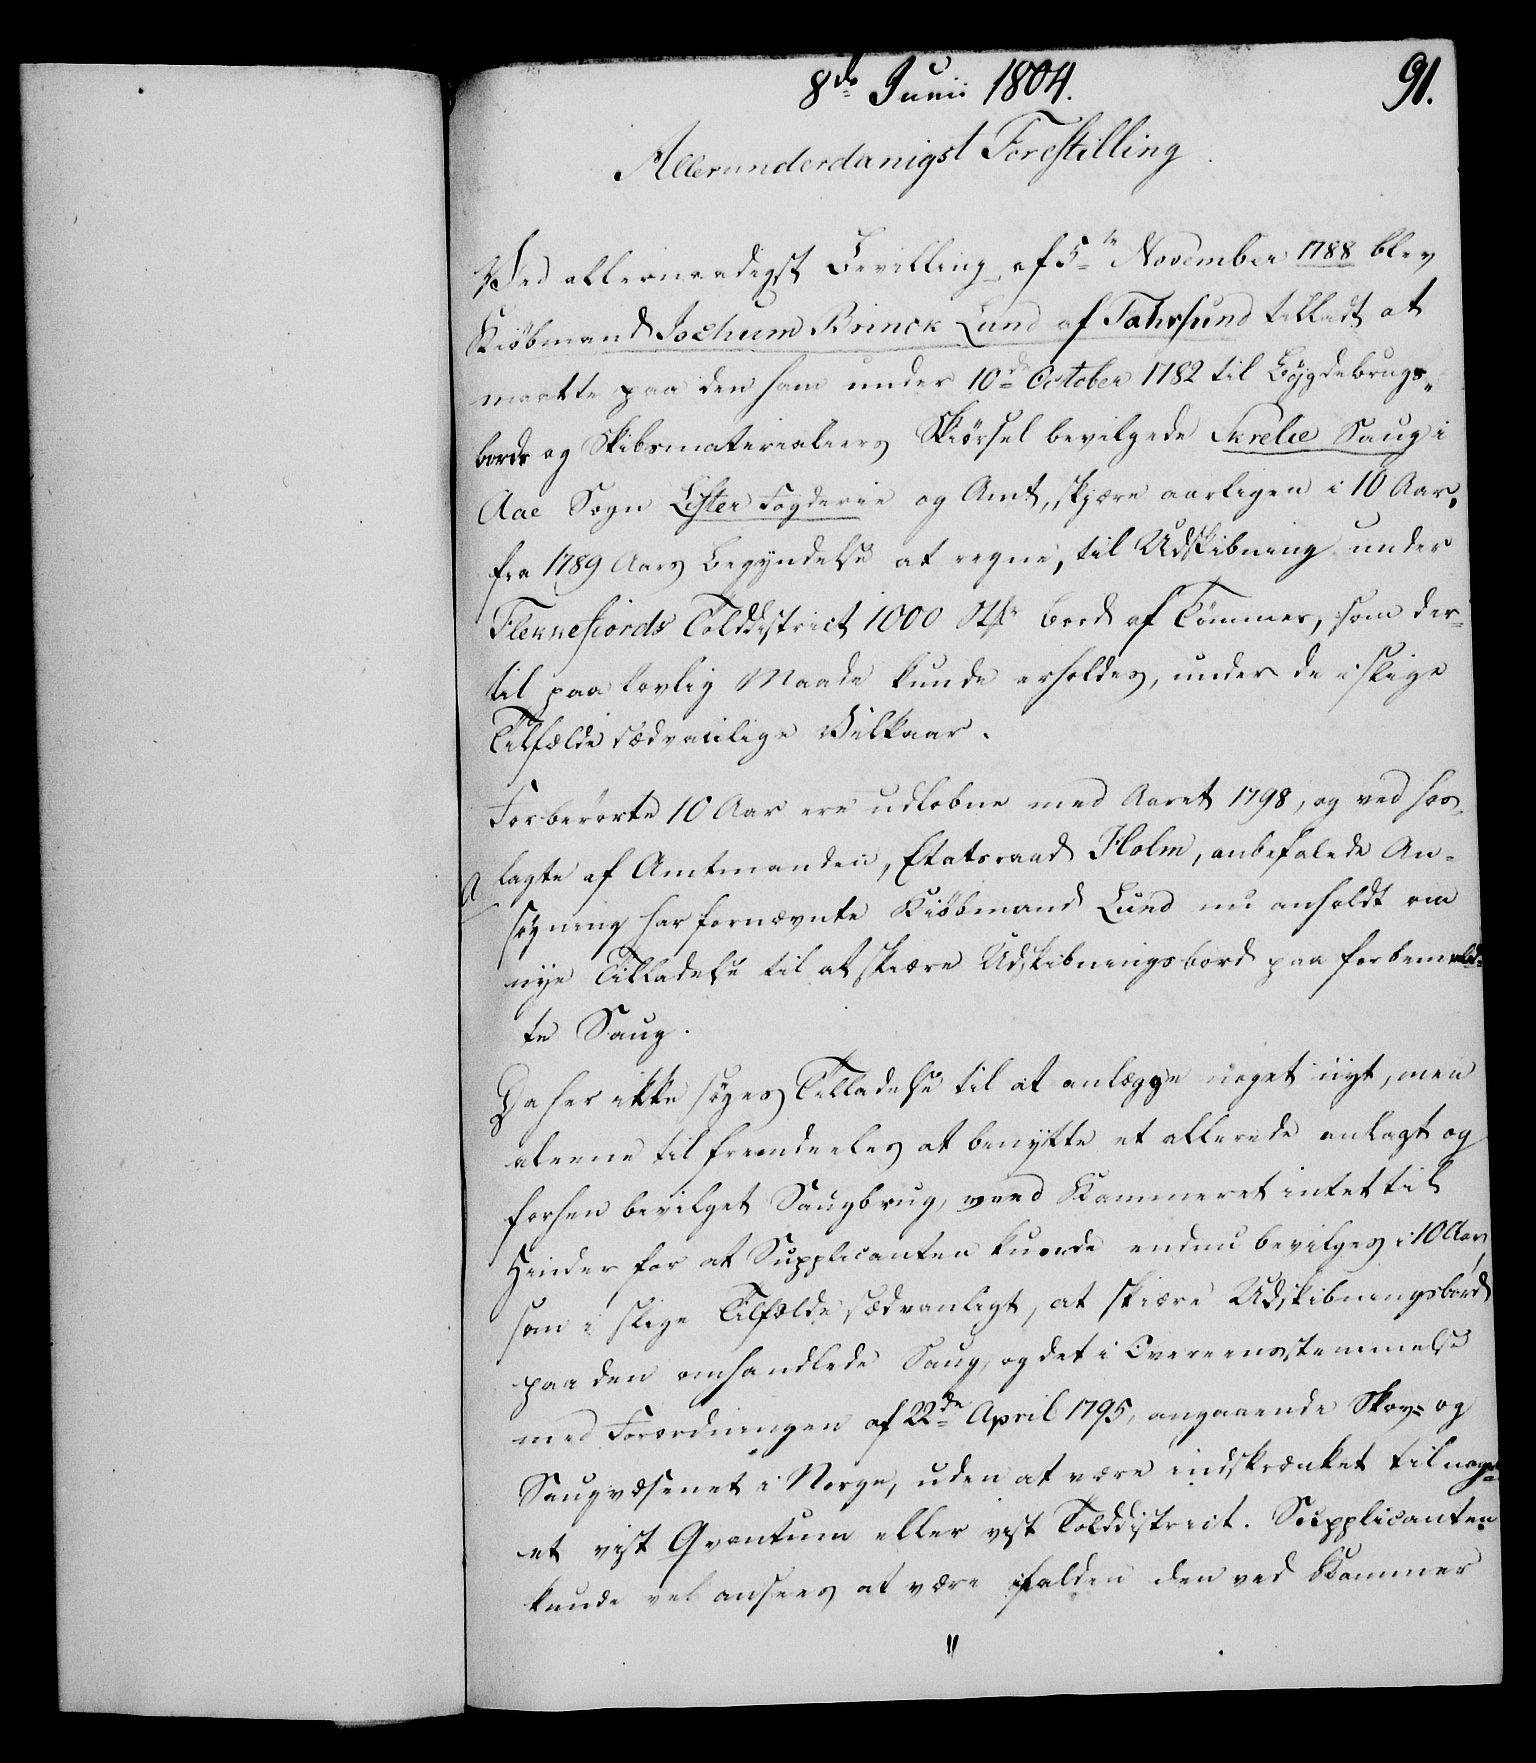 8de Junii 1804.
91.
Allerunderdanigst Forestilling.
Ved allernaadigst Bevilling af 5te November 1788 blev
Kiöbmand Jochum Brinck Lund af Fahrsund tilladt at
maatte paa den ham under 10de October 1782 til Bÿgdebrugs-
bords og Skibsmaterialiers Skiörsel bevilgede Skrelie Saug i
Aae Sogn Lister Fogderie og Amt, skjære aarligen i 10 Aar,
fra 1789 Aars Begyndelse at regne, til Udskibning under
Flekkefiords Tolddistrict 1000 Stkr bord af Tömmer, som der-
til paa lovlig Maade kunde erholdes, under de i slige
Tilfælde sædvanlige Vilkaar.
Forberörte 10 Aar ere udlobne med Aaret 1798, og ved hos-
lagte af Amtmanden, Etatsraad Holm, anbefalede An-
søgning har fornævnte Kiöbmand Lund nu anholdt om
nye Tilladelse til at skiære Udskibningsbord paa forbemeld-
te Saug.
Da her ikke søges Tilladelse til at anlægge noget nÿt, men
aleene til fremdeeles at benÿtte et allerede anlagt og
forhen bevilget Saugbrug, veed Kammeret intet til
Hinder for at Supplicanten kunde endnu bevilges i 10 Aar,
som i slige Tilfælde sædvanligt, at skiære Udskibningsbord
paa den omhandlede Saug, og det i Overeensstemmelse
med Forordningen af 22de April 1795, angaaende Skov- og
Saugvæsenet i Norge, uden at være indskrænket til noget
et vist Qvantum eller vist Tolddistrict. Supplicanten
kunde vel ansees at være ifalden den ved Kammer
"